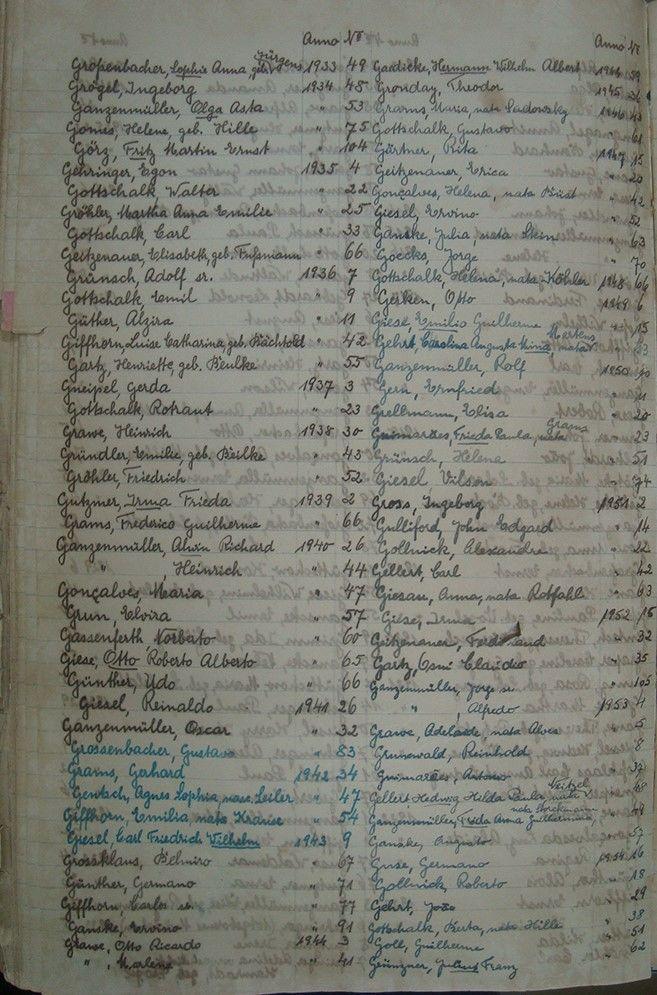 Anno No
Großenbacher, Sophie Anna, geb. Jürgens 1933 49
Grögel, Ingeborg 1934 48
Ganzenmüller, Olga Asta " 53
Gomes, Helene, geb. Hille " 75
Görz, Fritz Martin Ernst " 104
Gehringer, Egon 1935 4
Gottschalk Walter " 22
Gröhler, Martha Anna Emilie " 25
Gottschalk, Carl " 33
Geitzenauer, Elisabeth, geb. Fußmann " 66
Grünsch, Adolf sr. 1936 7
Gottschalk, Emil " 9
Güther, Alzira " 11
Giffhorn, Luise Catharina, geb. Bächtold " 42
Gartz, Henriette, geb. Beulke " 55
Gneipel, Gerda 1937 3
Gottschalk, Rotraut " 23
Grawe, Heinrich 1938 30
Gründler, Emilie, geb. Beilke " 43
Gröhler, Friedrich " 52
Gutzmer, Irma Frieda 1939 2
Grams, Frederico Guilherme " 66
Ganzenmüller, Alwin Richard 1940 26
" Heinrich " 44
Gonçalves, Maria " 47
Grun, Elvira " 57
Gassenferth Norbato " 60
Giese, Otto Roberto Alberto " 65
Günther, Udo " 66
Giesel, Reinaldo 1941 26
Ganzenmüller, Oscar " 32
Grossenbacher, Gustavo " 83
Grams, Gerhard 1942 34
Gentsch, Agnes Sophia, nasc. Leiler " 47
Giffhorn, Emilia, nata Krause " 54
Giesel, Carl Friedrich Wilhelm 1943 9
Grossklaus, Belmiro " 67
Günther, Germano " 71
Giffhorn, Carlos sr. " 77
Ganske, Ervino " 91
Grawe, Otto Ricardo 1944 3
" , Marlene " 41
Anno No
Gaedicke, Hermann Wilhelm Albert 1944 59
Gronday, Theodor 1945
Grams, Maria, nata Sadowsky 1946 43
Gottschalk, Gustavo " 61
Gärtner, Rita 1947 15
Geitzenauer, Erica " 20
Gonçalves, Helena, nata " 42
Giesel, Ervino " 52
Ganske, Julia, nata Stein " 63
Goecks, Jorge " 70
Gottschalk, Helena, nata Köhler 1948 66
Gerken, Otto 1949 6
Giese, Emilio Guilherme " 15
Gehrt, Carolina Augusta nata Martens 63
Ganzenmüller, Rolf 1950
Gern, Ernfried
Grellmann, Elisa " 20
Guimarães, Frieda Paula, nata Grams " 23
Grünsch, Helena " 51
Giesel Vilson " 74
Gross, Ingeborg 1951 2
Gulliford, John Edgard " 14
Gollnick, Alexandre " 22
Gellert, Carl " 42
Giesau, Anna, nata Rotfahl " 63
Giese, Irma 1952 15
Geitzenauer, Ferdinand " 32
Gartz, Osni Claudio " 35
Ganzenmüller, Jorge sr. " 105
" , Alfredo 1953 4
Grawe, Adelaide, nata Alves " 5
Grunewald, Reinhold " 8
Guimarães, Antonio " 37
Gellert Hedwig Hilda Paula, nata Veitzel
Ganzenmüller, Frida Anna Guilhermina, nata Storckmann
Ganske, Augusto " 57
Guse, Germano 1954 16
Gollnick, Roberto " 18
Gehrt, João " 29
Gottschalk, Berta, nata Hille " 38
Goll, Guilherme " 51
Grünzner, Julius Franz " 62